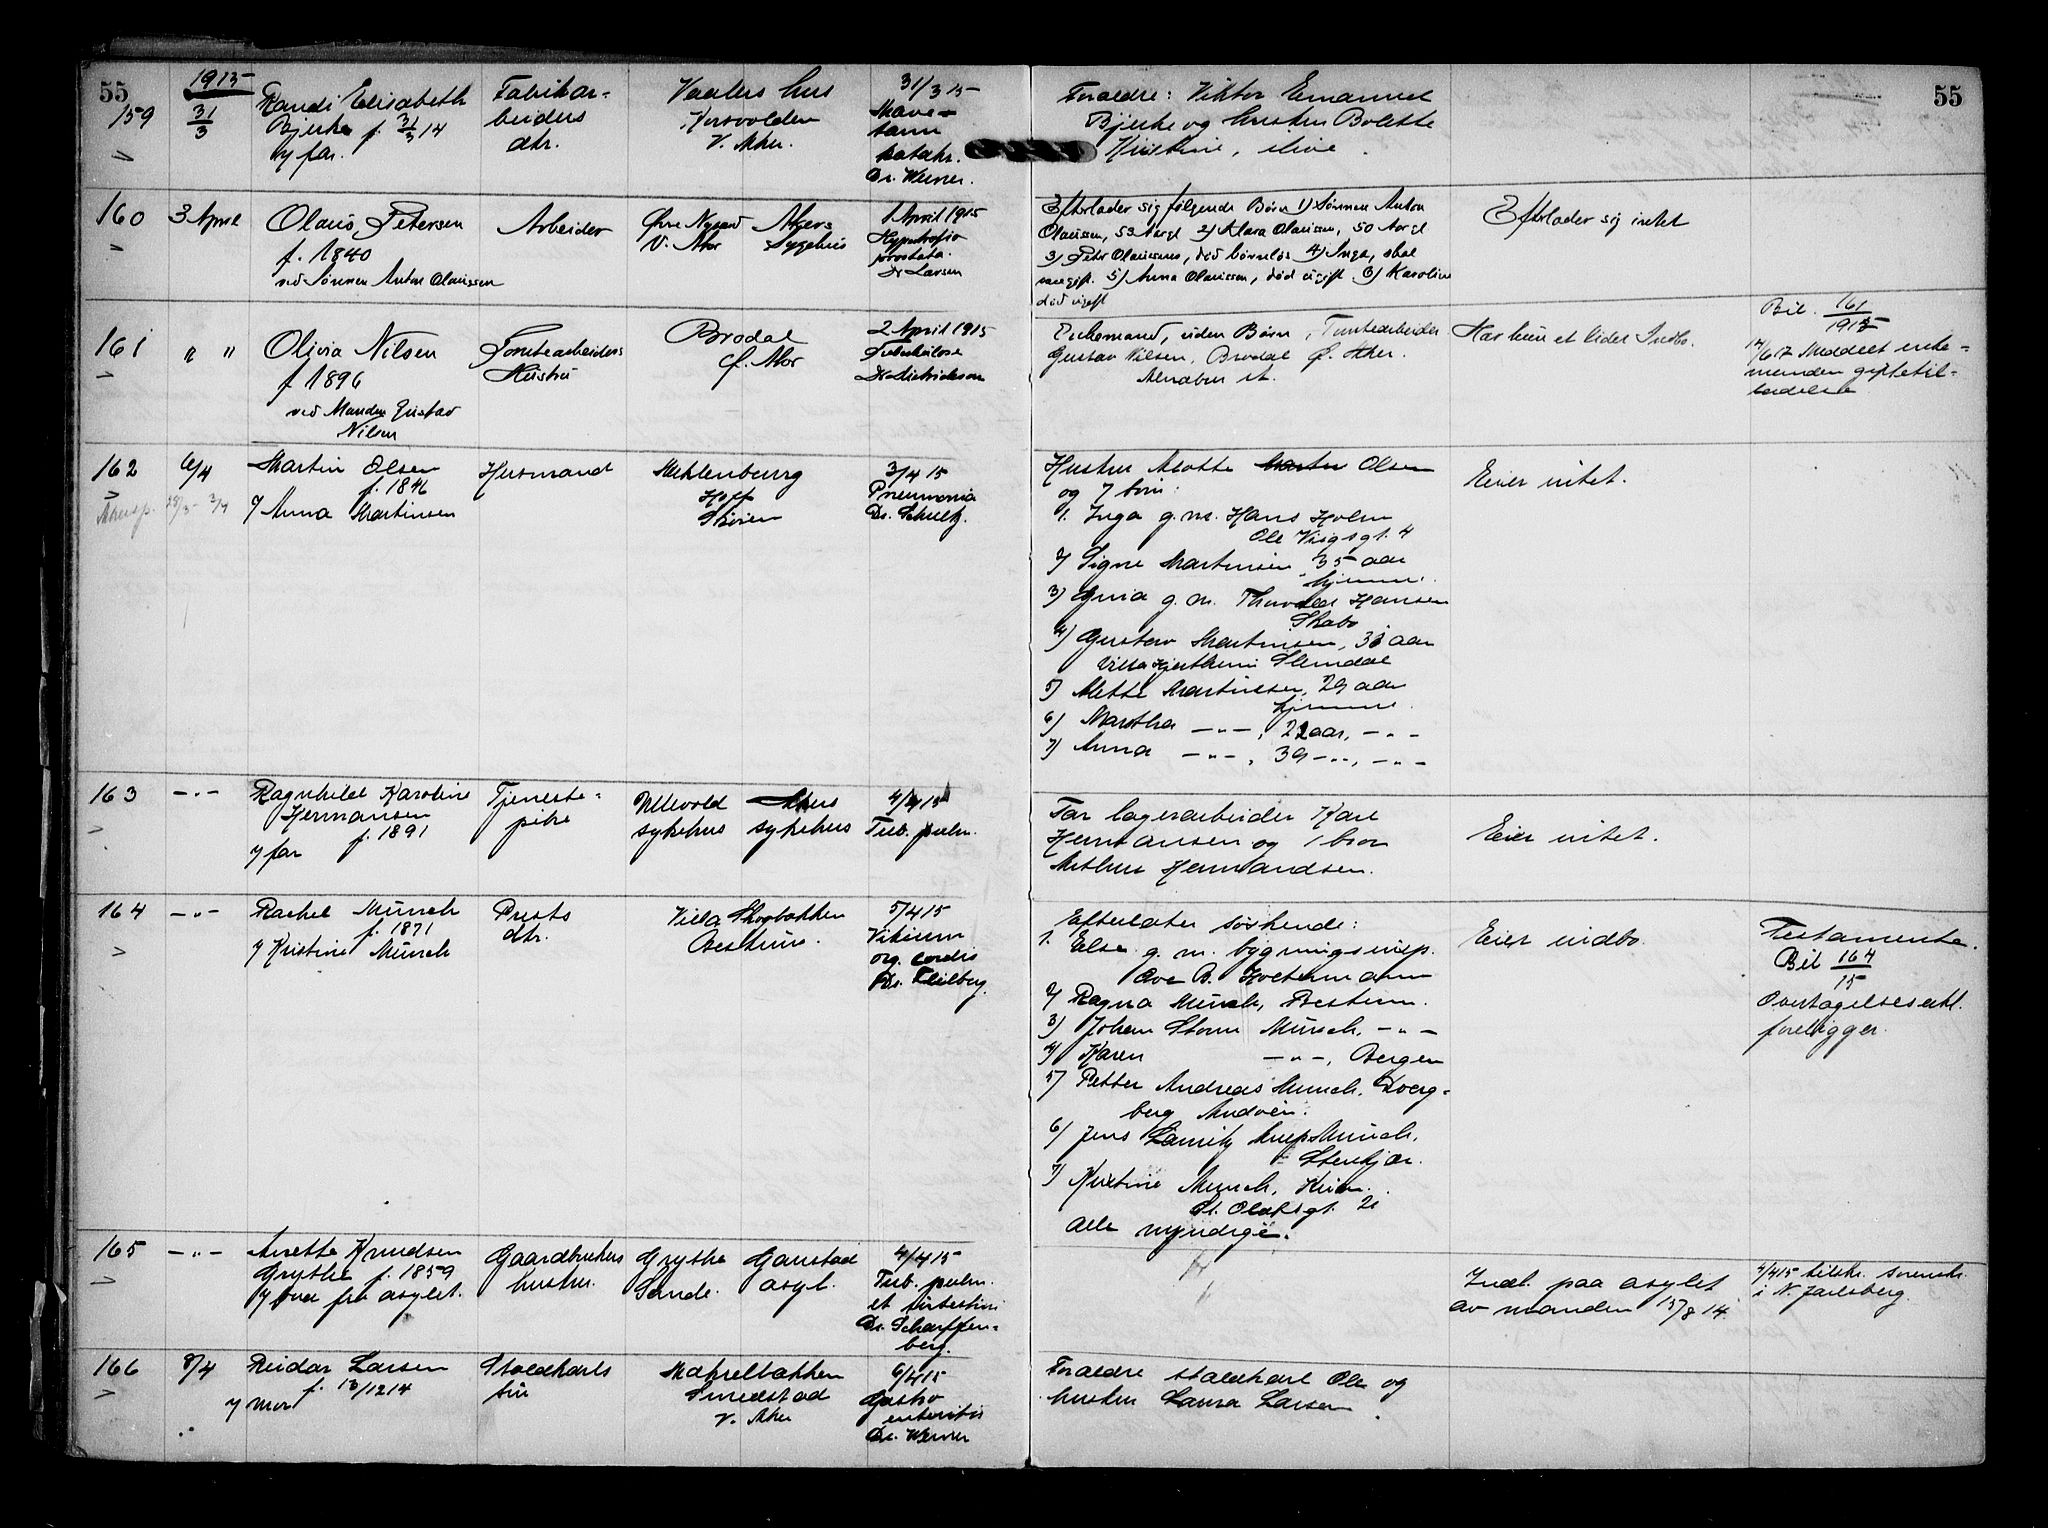 55
1915
55
159
31/3
Randi Elisabeth
Bjerke f. 31/3 14
v/ far.
Fabrikar-
beiders
dtr.
Vaalers hus
Korsvolden
V. Aker.
31/3 15
Mave-
tarm
katarr.
Dr. Werner.
Foraeldre: Viktor Emanuel
Bjerke og hustru Bolette
Kristine, ilive.
160
3 April
Olaus Petersen
f. 1840
ved Sønnen Anton Olaussen
Arbeider
Øvre Nygaard
V. Aker
Akers
Sygehus
1 April 1915
Hypertrofia
prostata
Dr Larsen
Efterlader sig følgende Børn 1) Sønnen Anton
Olaussen, 53 Aar gl 2) Klara Olaussen, 50 Aar gl
3) Peter Olaussen, død børnløs 4) Inga, skal
være gift. 5) Anna Olaussen, død ugift 6) Karoline
død ugift
Efterlader sig intet
161
" "
Olivia Nilsen
f 1896
ved Manden Gustav
Nilsen
Tomtearbeiders
Hustru
Brodal
Ø. Aker
2 April 1915
Tuberkulose
Dr Dietrichson
Enkemand, uden Børn, Tomtearbeider
Gustav Nilsen, Brodal Ø. Aker.
Alnabru st.
Har kun et lidet Indbo.
Bil. 161/1915
14/6 17 Meddelt enke-
manden giftetil-
ladelse
162
6/4
Akersp. 28/3 - 3/4
Martin Olsen
f. 1846
v/ Anna Martinsen
Husmand
Mehlenburg
Hoff
Skøien
3/4 15
Pneumonia
Dr. Schultz.
Hustru Mette Olsen
og 7 barn:
1. Inga g. m. Hans Holm
Ole Vigsgt. 4
2) Signe Martinsen 35 aar
hjemme.
3) g. m. Thorvald Hansen
Skabo
4) Gustav Martinsen, 31 aar
Villa Slemdal
5) Mette Martinsen, 29 aar
hjemme.
6) Martha -"-, 22 aar, -"-
7) Anna -"-, 39 -"-, -"-
Eier intet.
163
-"-
Ragnhild Karoline
Hermansen
f. 1891
v/ far
Tjeneste-
pike
Ullevold
sykehus
Akers
sykehus
4/4 15
Tub. pulm.
Far lagerarbeider Karl
Hermansen og 1 bror
Hermandsen.
Eier intet.
164
-"-
Rachel Münch
f. 1871
v/ Kristine Münch
Prests
dtr.
Villa Skogbakken
Bestum.
5/4 15
Vitium
org. cordis
Dr.
Efterlater søskende:
1. Else g. m. bygningsinsp.
Ove B. Holtermann
2) Ragna Münch, Bestum.
3) Johan Storm Münch, -"-
4) Karen -"-, Bergen
5) Petter Andreas Munch, Dverg-
berg Andøen.
6) Jens Münch,
Stenkjær.
7) Kristine Munch, Kra.
St. Olafsgt. 21
Alle myndige.
Eier indbo.
Testamente.
Bil 164/15
Overtagelseserkl.
foreligger.
165
-"-
Anette Knudsen
Grythe f. 1859
v/ fra asylet.
Gaardbrukers
hustru.
Grythe
Sande.
Gaustad
asyl.
4/4 15
Tub. pulm.
et intestini
Dr. Scharffen-
berg.
Indl. paa asylet
av manden 15/8 14.
7/4 15 tilskr. sorenskr.
i N. Jarlsberg.
166
8/4
Reidar Larsen
f. 13/12 14
v/ mor
Staldkarls
søn
Makrelbakken
Smedstad
V. Aker
6/4 15
Gastro
enteritis
Dr. Werner
Foraeldre staldkarl Ole og
hustru Laura Larsen.